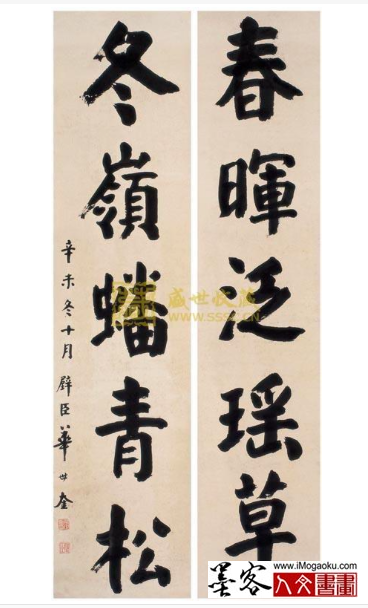 春暉泛瑤草
冬嶺蟠青松
辛未冬十月 璧臣 華世奎
盛世收藏
www.sssc.cn
www.iMogaoku.com
墨客
人文書畫